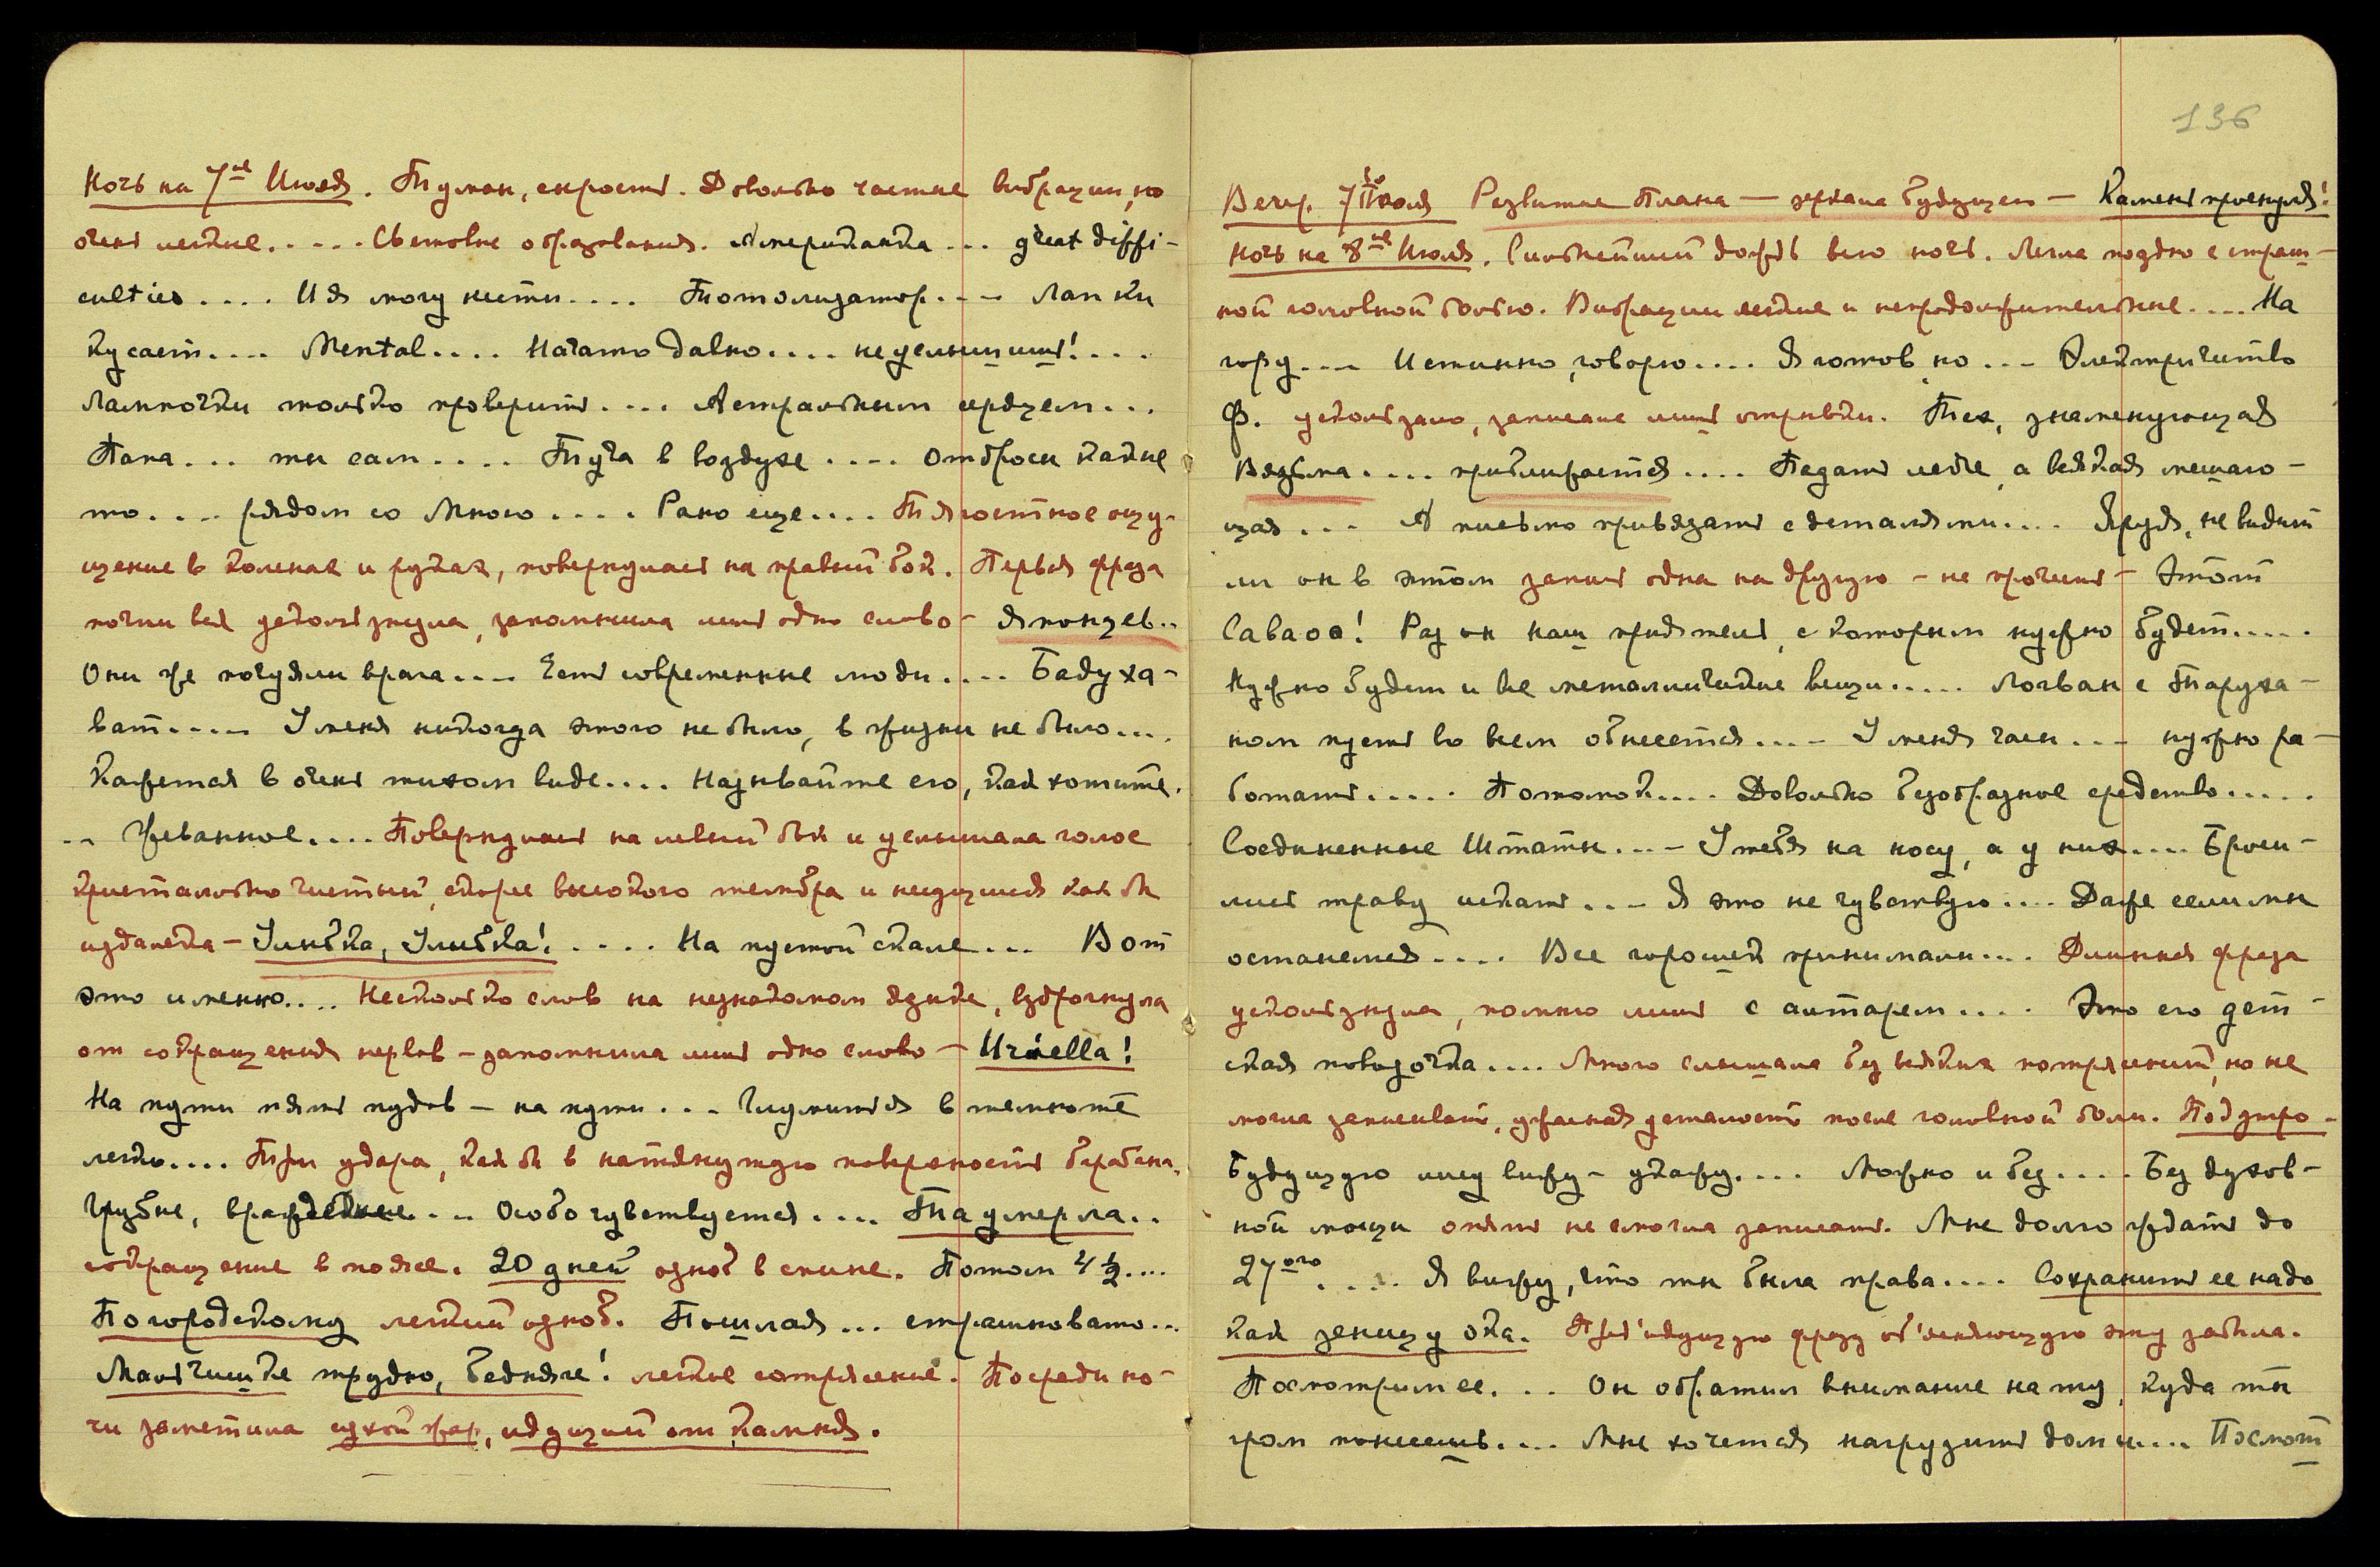 Ночь на 7ое Июля. Туман, сырость. Довольно частые вибрации, но
очень легкие..... Световые образования. Американка... great diffi-
culties.... И я могу нести.... Тотализатор... Лапки
кусает.... Mental.... Начато давно.... не услышишь!....
Лампочки только проверить.... Астральным сердцем...
Папа... ты сам.... Туча в воздухе.... Отбросы какие
то.... рядом со мною.... Рано еще.... Тягостное ощу-
щение в коленах и руках, повернулась на правый бок. Первая фраза
почти вся ускользнула, запомнила лишь одно слово - Японцев..
Они же почуяли врага.... Есть современные люди.... Бадуха-
ват..... У меня никогда этого не было, в жизни не было....
Кажется в очень тихом виде.... Называйте его, как хотите.
.. Жеванное.... Повернулась на левый бок и услышала голос
кристально чистый, скорее высокого тембра и несущийся как бы
издалека - Улыбка, Улыбка!..... На пустой скале... Вот
это именно.... Несколько слов на незнакомом языке, вздрогнула
от сокращения нервов - запомнила лишь одно слово - Uriella!
На пути пять пудов - на пути... Глумиться в темноте
легко.... Три удара, как бы в натянутую поверхность барабана,
Грубые, ... Особо чувствуется.... Та умерла..
сокращение в поясе. 20 дней озноб в спине. Потом 4½....
По городскому легкий озноб. Пошлая... страшновато...
Мальчишке трудно, бедняге! легкое сотрясение. Посреди но-
чи заметила сухой жар, идущий от камня.
136
Вечер 7 Июля Развитие Плана - зеркала будущего - Камень проснулся!
Ночь на 8ое Июля. Сильнейший дождь всю ночь. Легла поздно с страш-
ной головной болью. Вибрации легкие и непродолжительные.... На
гору.... Истинно, говорю.... Я готов, но... Электричество
Ф. ускользало, записаны лишь отрывки. Тех, знаменующая
Вязьма.... приближается.... Подать легче, а всякая мешаю-
щая... А письмо привязать с деталями.... Друзья, не видит
ли он в этом запись одна на другую - не прочит - Этот
Саваоѳ! Раз он наш приятель, с которым нужно будет.....
Нужно будет и все металлические вещи..... Логван с Таруха-
ном пусть во всем обнесется.... У меня часы... нужно ра-
ботать..... Потолок.... Довольно безобразное средство.....
Соединенные Штаты... У тебя на носу, а у них.... Броси-
лись траву искать... Я это не чувствую.... Даже если мы
останемся.... Все горошек принимали.... Длинная фраза
ускользнула, помню лишь с алтарем.... Это его дет-
ская повадочка.... Много слышала без всяких потрясений, но не
могла записывать, ужасная усталость после головной боли. Под утро-
Будущую лигу вижу - укажу.... Можно и без.... Без духов-
ной мощи опять не смогла записать. Мне долго ждать до
27ого.... Я вижу, что ты была права.... Сохранить ее надо
как зеницу ока. Предыдущую фразу об'ясняющую эту забыла.
Посмотрим ее... Он обратил внимание на ту, куда ты
гром понесешь.... Мне хочется нагрузить дом и.... Посмот